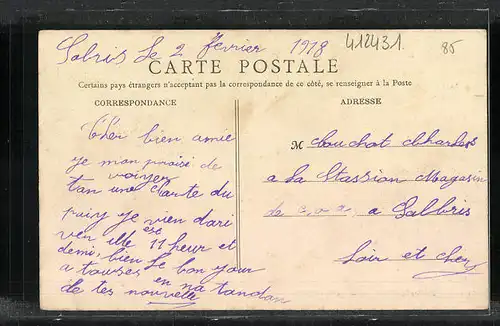 Salbris le 2 fevrier 1918
412431
85
CARTE POSTALE
Certains pays étrangers n'acceptant pas la correspondance de ce côté, se renseigner à la Poste
CORRESPONDANCE
ADRESSE
Cher bien amie
je man praisi de
voiyer
tan une carte du
paiy je vien dari
ver ille est 11 heur et
demi, bien le bon jour
a toutes en na tandan
de tes nouvelle
M Couchot Charles
a La Stassion Magasin
a Salbris
Loir et Cher